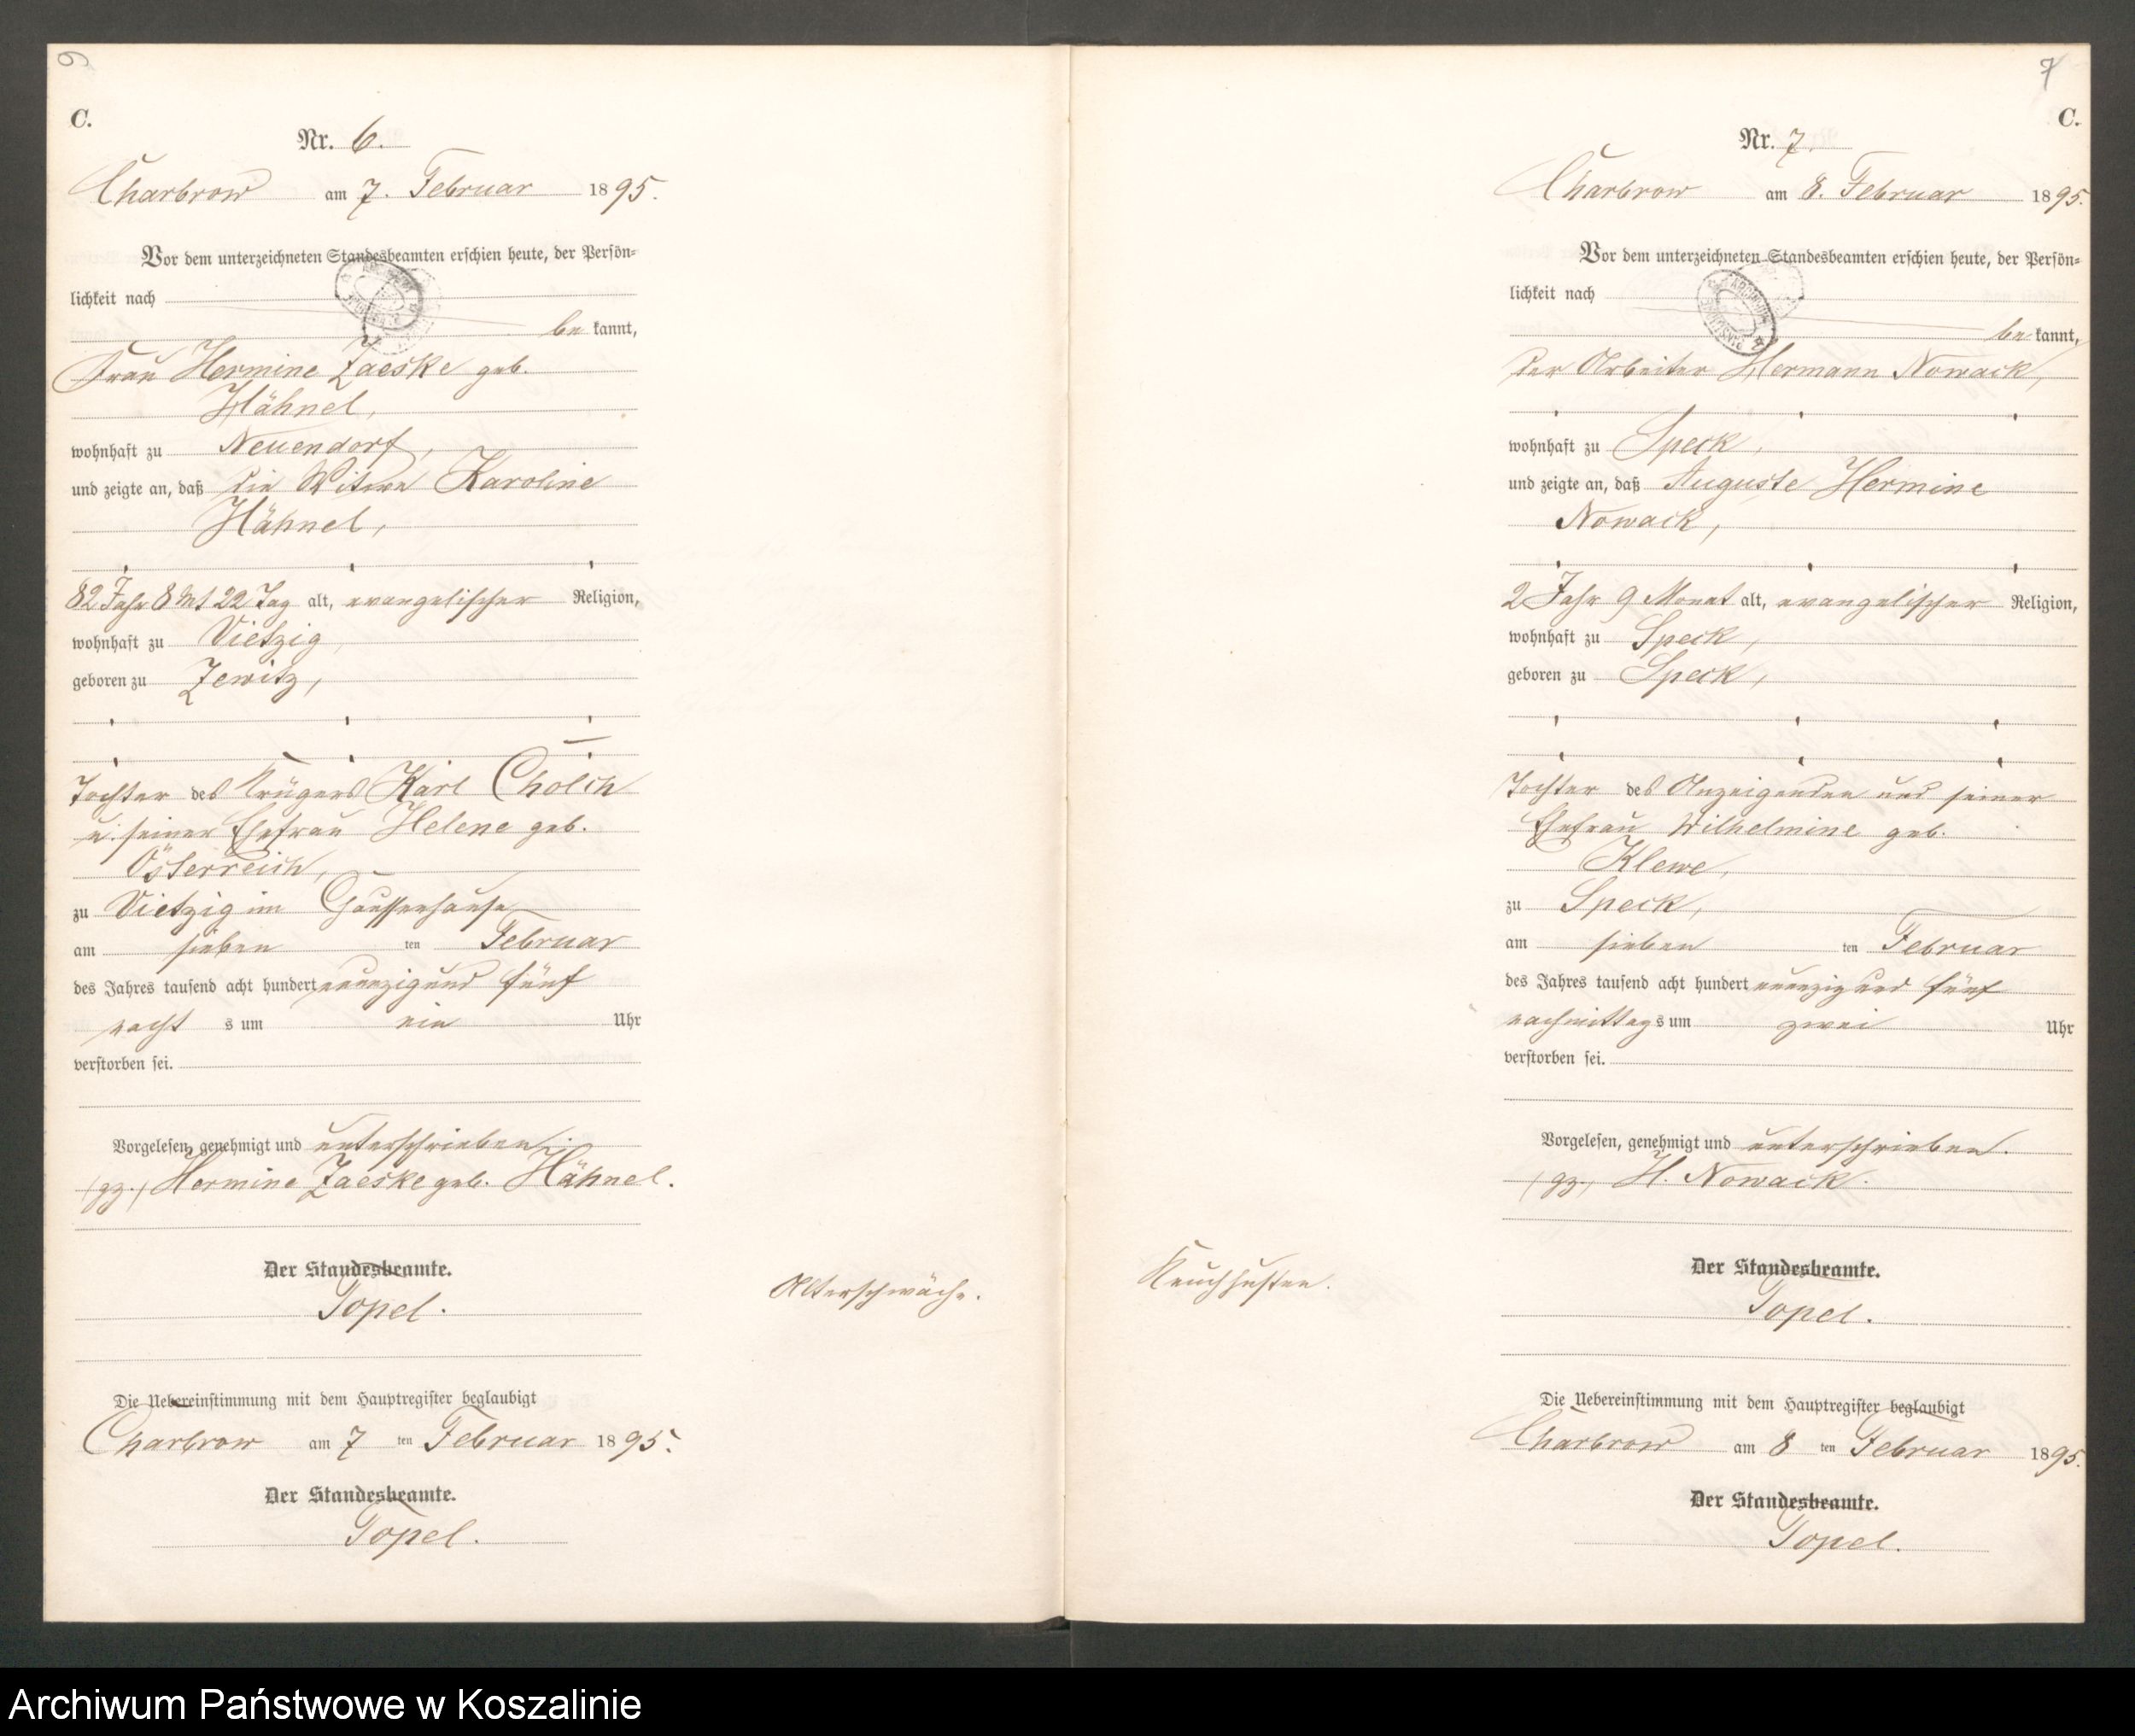 6
C.
Nr. 6.
Charbrow am 7. Februar 1895.
Vor dem unterzeichneten Standesbeamten erschien heute, der Persön-
lichkeit nach
be kannt,
Frau Hermine Zaeske geb.
Hähnel,
wohnhaft zu Neuendorf,
und zeigte an, daß die Witwe Karoline
Hähnel,
82 Jahr 8 Mt 22 Tag alt, evangelischer Religion,
wohnhaft zu Vietzig,
geboren zu Zewitz,
Tochter des Krügers Karl Cholch
u. seiner Ehefrau Helene geb.
Österreich,
zu Vietzig im Chausseehause
am sieben ten Februar
des Jahres tausend acht hundert neunzig und fünf
nacht s um ein Uhr
verstorben sei.
Vorgelesen, genehmigt und unterschrieben.
(gz.) Hermine Zaeske geb. Hähnel.
Der Standesbeamte.
Topel.
Altersschwäche.
Die Uebereinstimmung mit dem Hauptregister beglaubigt
Charbrow am 7 ten Februar 1895.
Der Standesbeamte.
Topel.
7
C.
Nr. 7.
Charbrow am 8. Februar 1895.
Vor dem unterzeichneten Standesbeamten erschien heute, der Persön-
lichkeit nach
be kannt,
der Arbeiter Hermann Nowack,
wohnhaft zu Speck,
und zeigte an, daß Auguste Hermine
Nowack,
2 Jahr 9 Monat alt, evangelischer Religion,
wohnhaft zu Speck,
geboren zu Speck,
Tochter des Anzeigenden und seiner
Ehefrau Wilhelmine geb.
Klewe,
zu Speck,
am sieben ten Februar
des Jahres tausend acht hundert neunzig und fünf
nachmittag s um zwei Uhr
verstorben sei.
Vorgelesen, genehmigt und unterschrieben.
(gz.) H. Nowack.
Der Standesbeamte.
Topel.
Keuchhusten.
Die Uebereinstimmung mit dem Hauptregister beglaubigt
Charbrow am 8 ten Februar 1895.
Der Standesbeamte.
Topel.
Archiwum Państwowe w Koszalinie